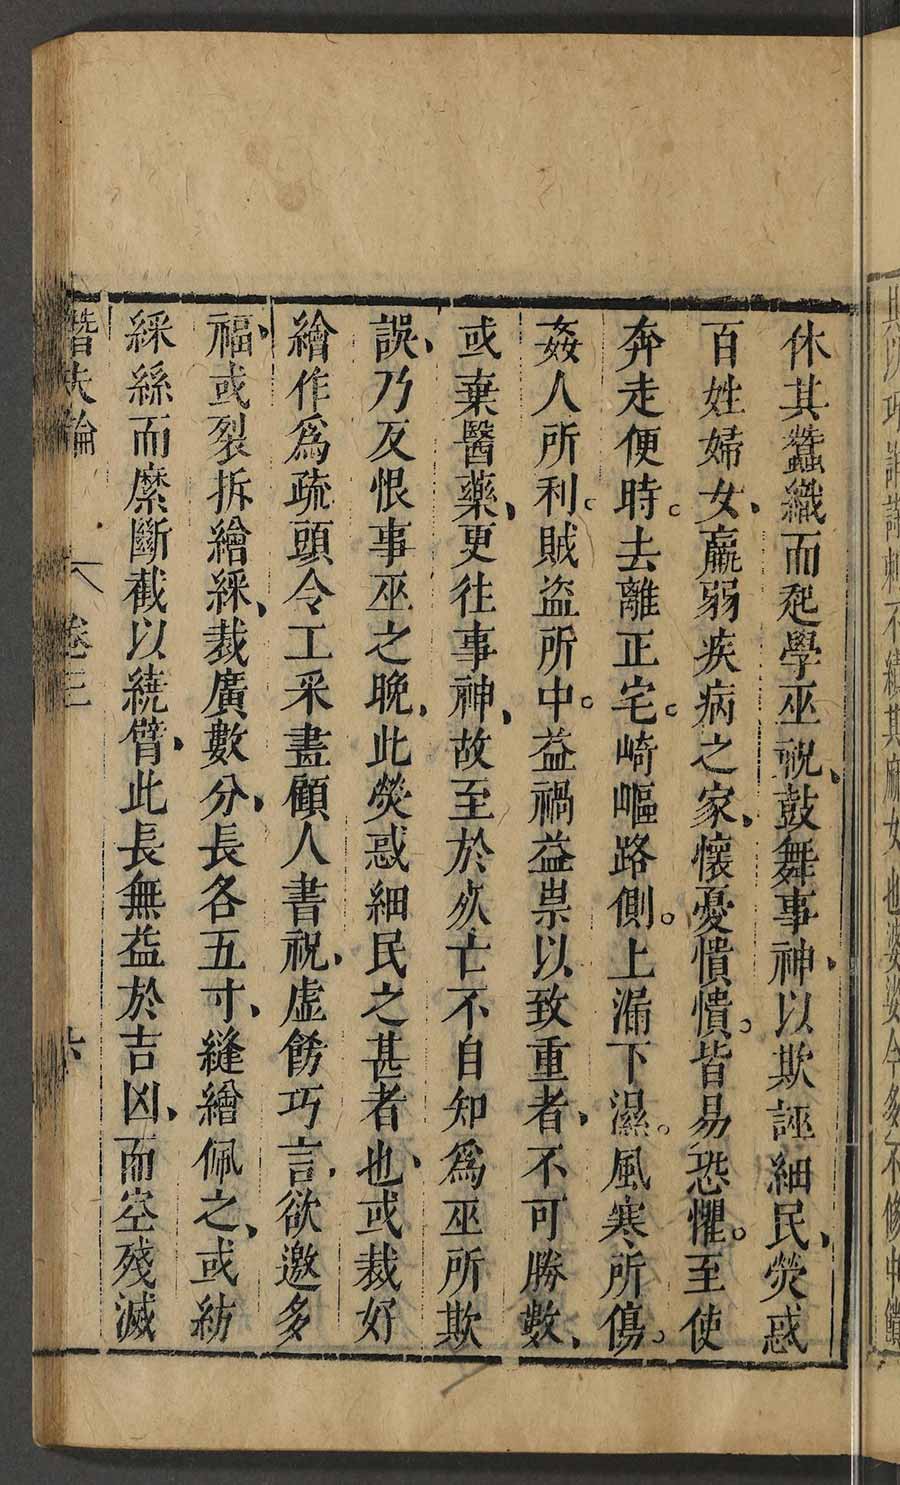 休其蠶織而起學巫祝、鼓舞事神、以欺誣細民、熒惑
百姓婦女、羸弱疾病之家、懷憂憒憒。皆易恐懼。至使
奔走便時。去離正宅。崎嶇路側。上漏下濕。風寒所傷。
姦人所利。賊盗所中。益禍益祟以致重者、不可勝數、
或棄醫藥、更往事神、故至於死亡不自知爲巫所欺
誤、乃反恨事巫之晚、此熒惑細民之甚者也、或裁好
繒作爲疏頭令工采畫顧人書祝、虛餙巧言、欲邀多
福、或裂拆繒綵、裁廣數分、長各五寸、縫繒佩之、或紡
綵絲而縻斷截以繞臂、此長無益於吉凶、而空殘滅
潜夫論 卷三 六